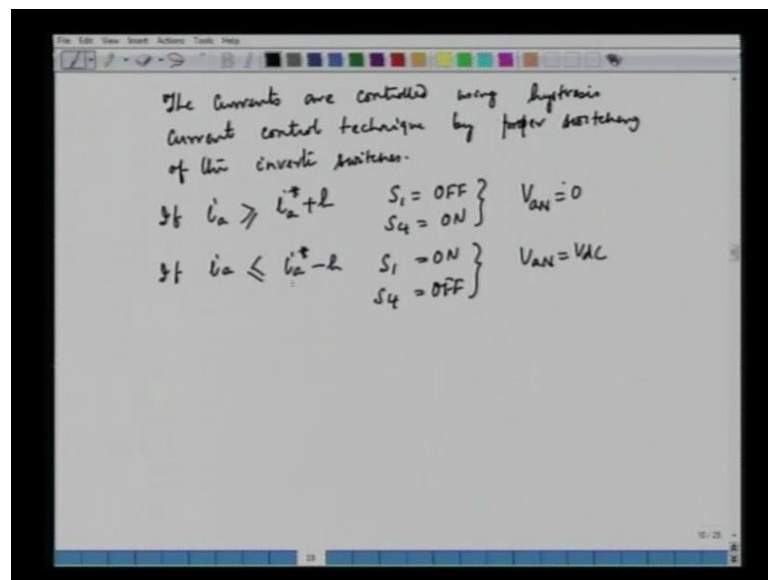 File Edit View Insert Actions Tools Help
The currents are controlled using hystresis
current control technique by proper switching
of the inverter switches.
If ia ⩾ ia*+h S1 = OFF } VaN = 0
S4 = ON
If ia ⩽ ia*-h S1 = ON } VaN = Vdc
S4 = OFF
10/25
19